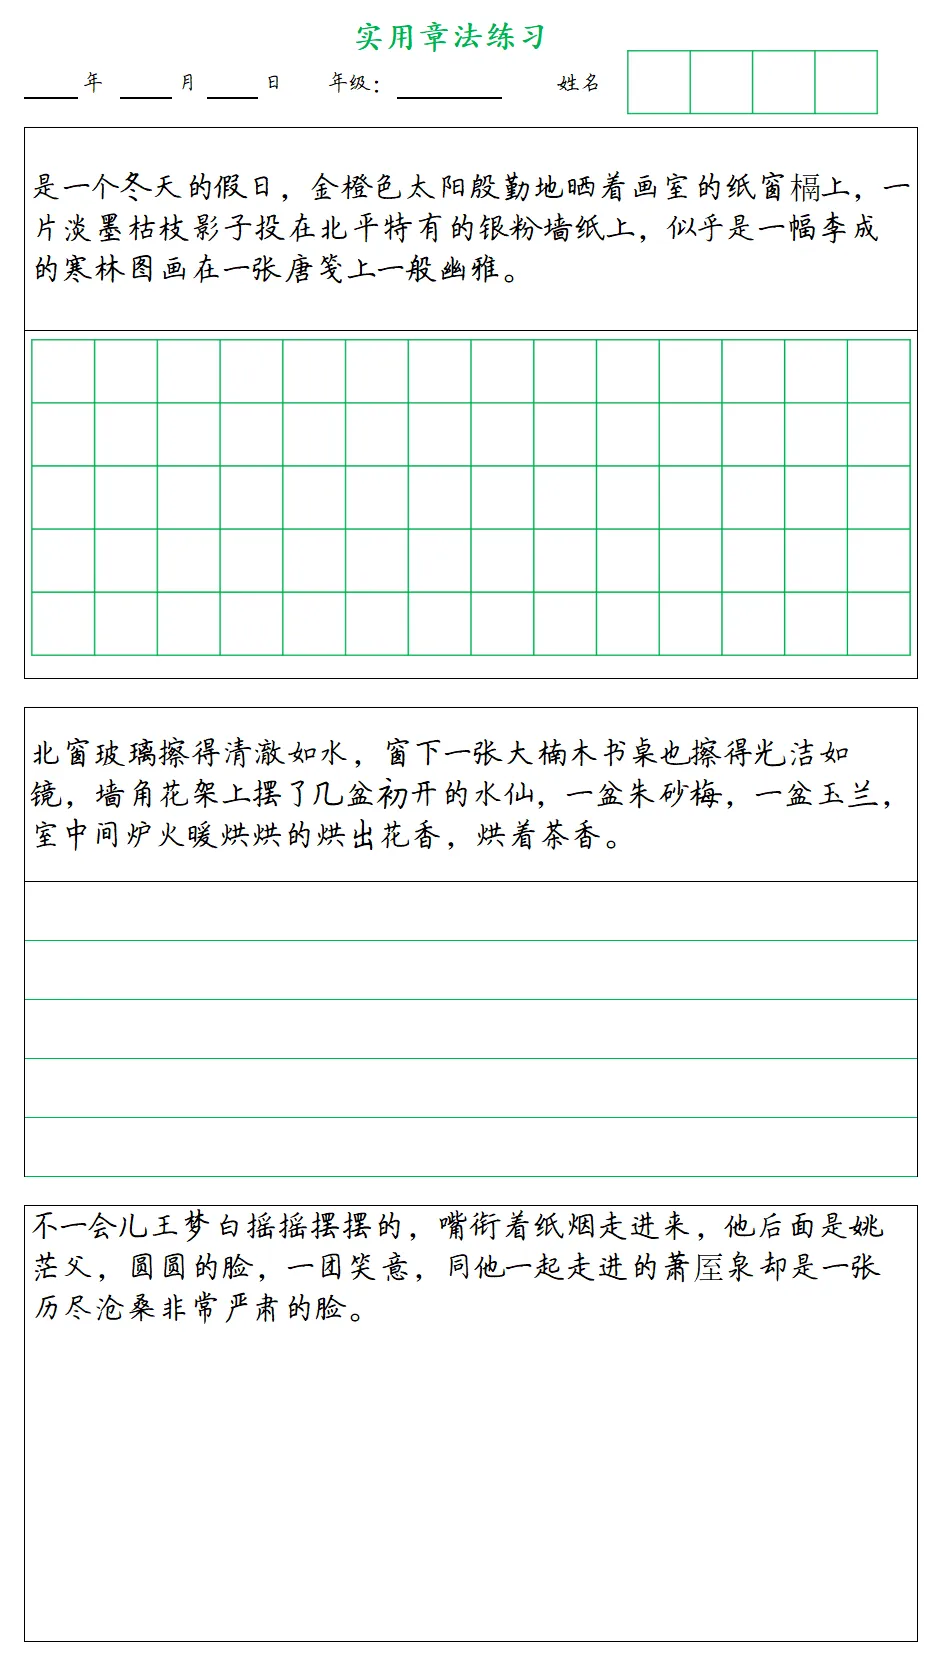 实用章法练习
年 月 日 年级： 姓名
是一个冬天的假日，金橙色太阳殷勤地晒着画室的纸窗槅上，一
片淡墨枯枝影子投在北平特有的银粉墙纸上，似乎是一幅李成
的寒林图画在一张唐笺上一般幽雅。
北窗玻璃擦得清澈如水，窗下一张大楠木书桌也擦得光洁如
镜，墙角花架上摆了几盆初开的水仙，一盆朱砂梅，一盆玉兰，
室中间炉火暖烘烘的烘出花香，烘着茶香。
不一会儿王梦白摇摇摆摆的，嘴衔着纸烟走进来，他后面是姚
茫父，圆圆的脸，一团笑意，同他一起走进的萧厔泉却是一张
历尽沧桑非常严肃的脸。